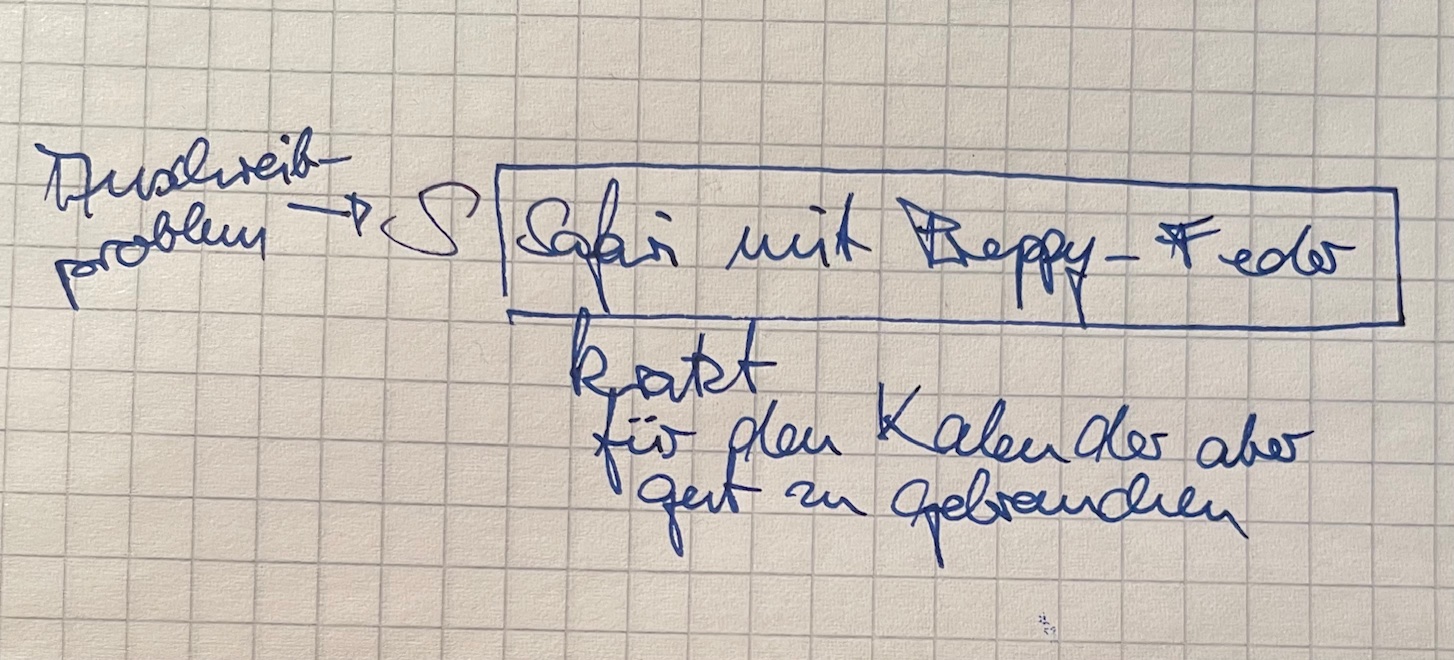 Anschreib-
problem → S
Safari mit Preppy-Feder
kratzt
für den Kalender aber
gut zu gebrauchen